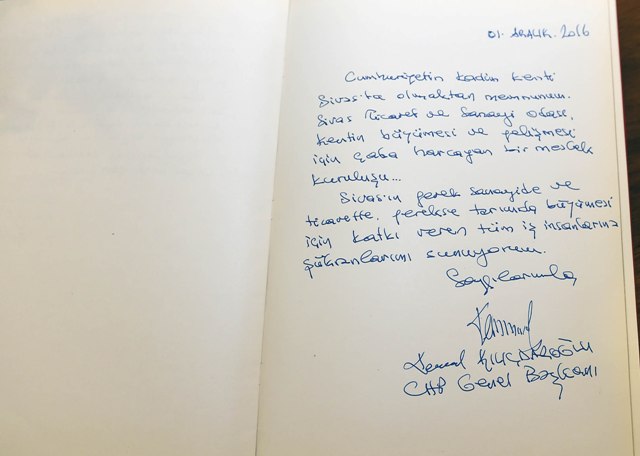 01. ARALIK. 2016
Cumhuriyetin kadim kenti
Sivas'ta olmaktan memnunum.
Sivas Ticaret ve Sanayi Odası,
kentin büyümesi ve gelişmesi
için çaba harcayan bir meslek
kuruluşu...
Sivas'ın gerek sanayide ve
ticarette, gerekse tarımda büyümesi
için katkı veren tüm iş insanlarına
şükranlarımı sunuyorum.
Saygılarımla
Kemal KILIÇDAROĞLU
CHP Genel Başkanı